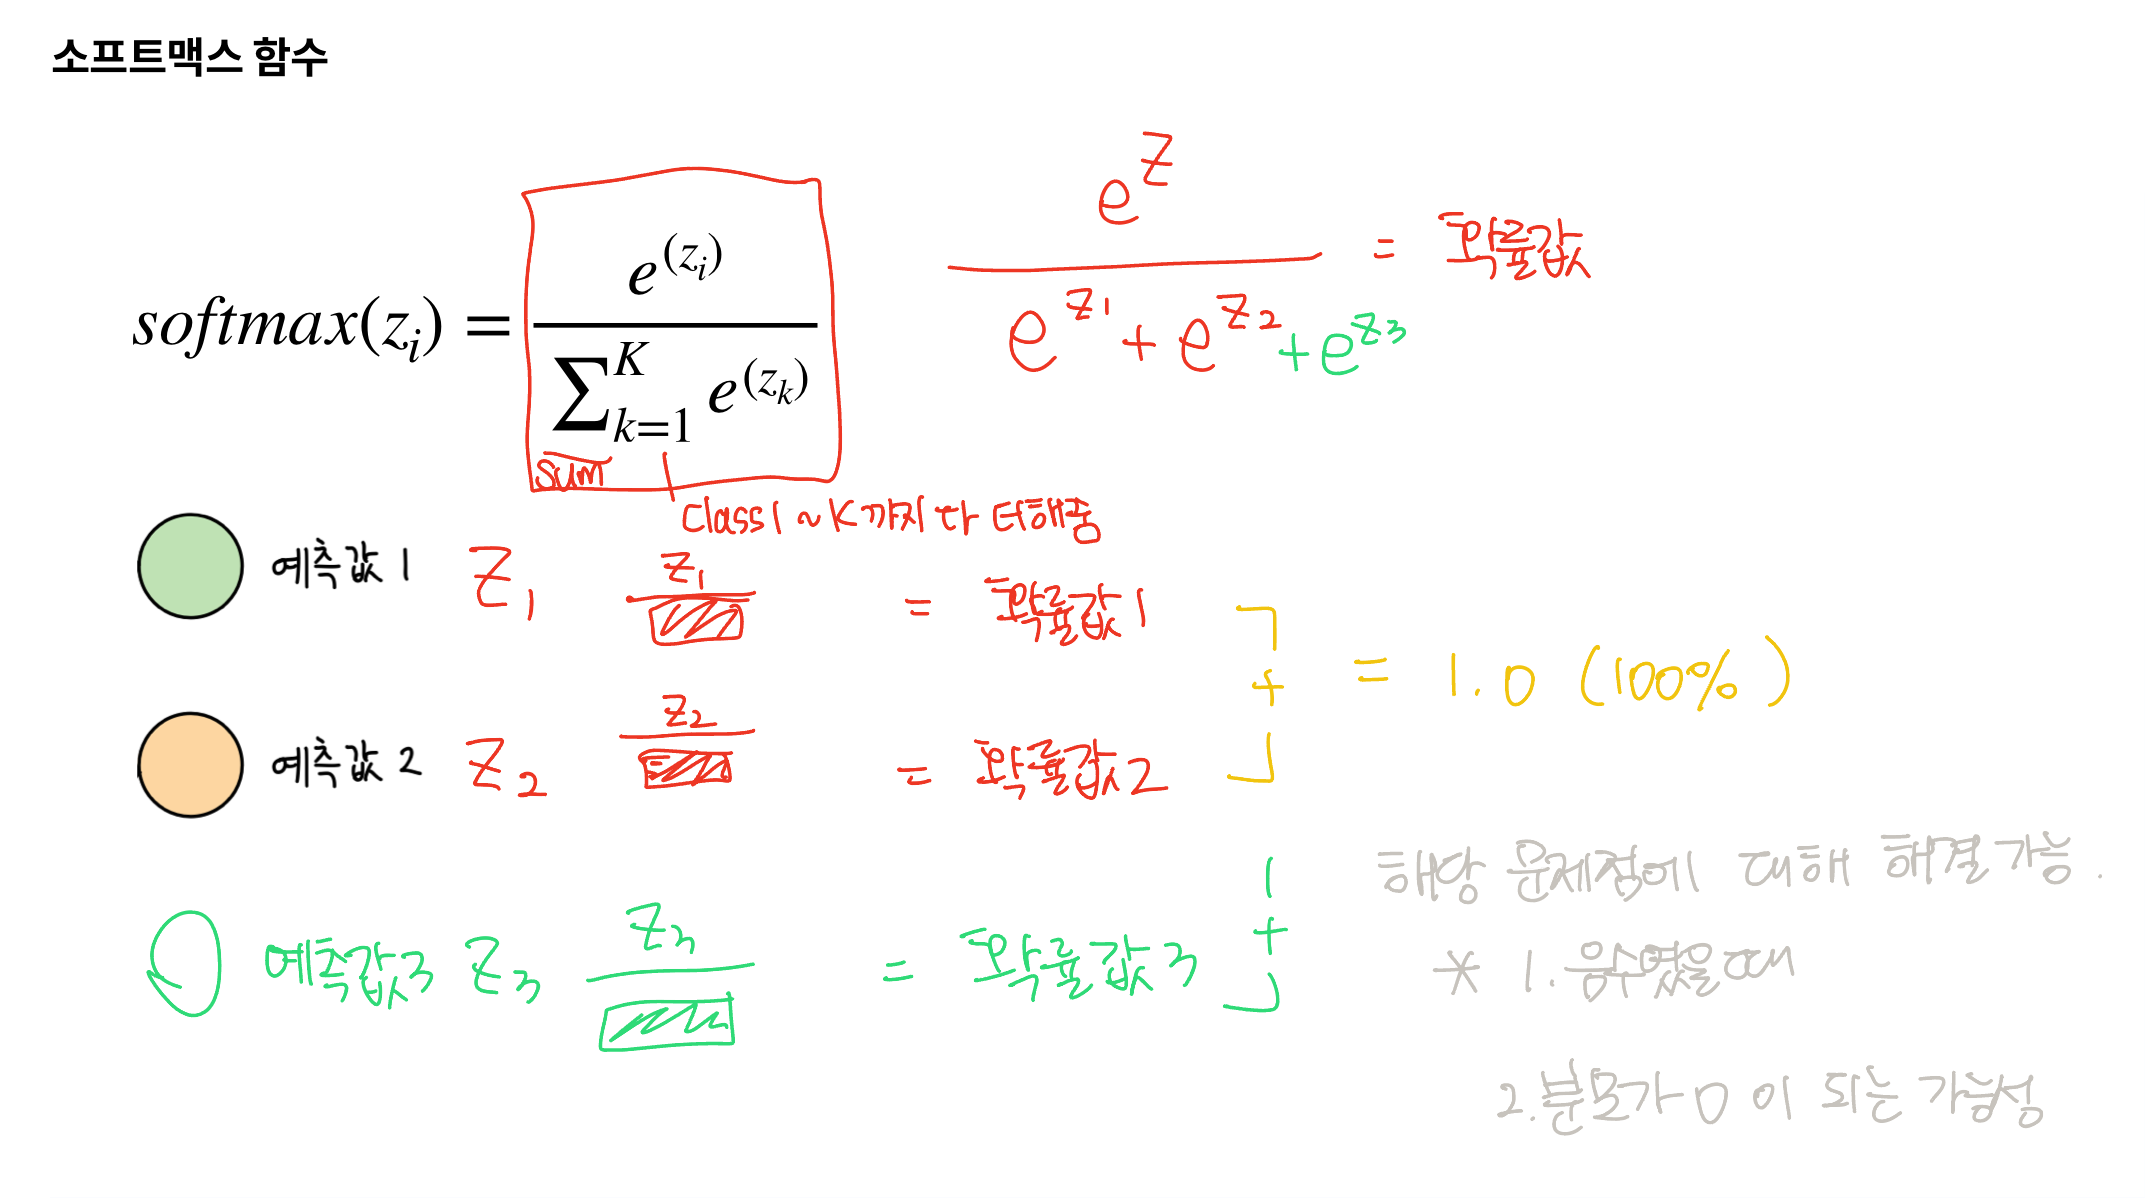 소프트맥스 함수
softmax(z_i) = e^(z_i) / ∑_{k=1}^{K} e^(z_k)
e^z / e^z1 + e^z2 + e^z3 = 확률값
sum
Class1 ~ K까지 다 더해줌
예측값 1 Z1 Z1 = 확률값1
+ = 1.0 (100%)
예측값 2 Z2 Z2 = 확률값2
예측값3 Z3 Z3 = 확률값3
+
해당 문제점에 대해 해결 가능.
* 1. 음수였을때
2. 분모가 0 이 되는 가능성